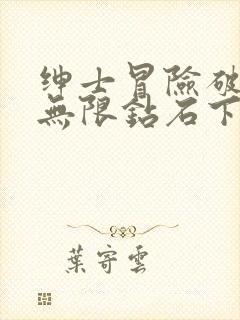 绅士冒險破
無限鉆石下
葉寄雲